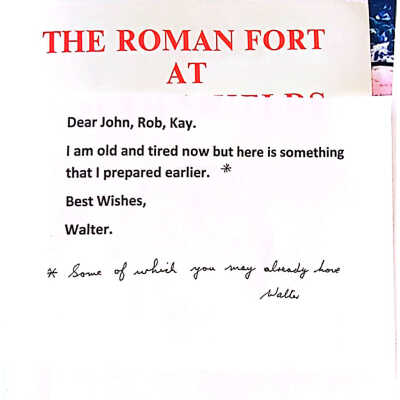 THE ROMAN FORT
AT
Dear John, Rob, Kay.
I am old and tired now but here is something
that I prepared earlier. *
Best Wishes,
Walter.
* Some of which you may already have
Walter